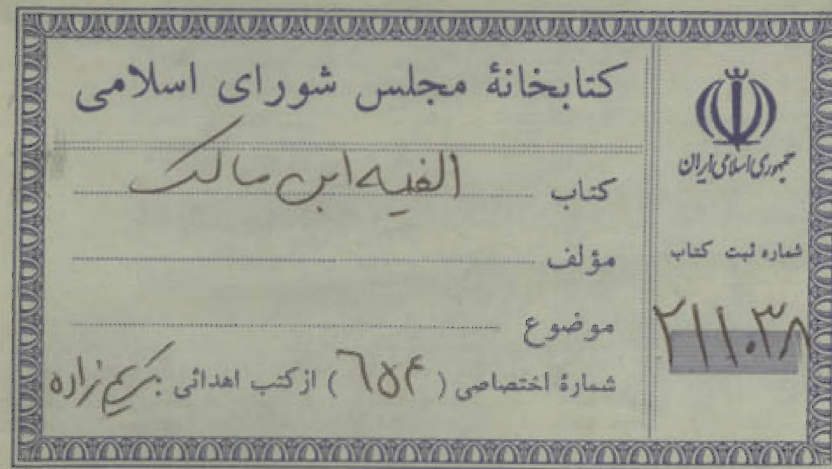 کتابخانهٔ مجلس شورای اسلامی
کتاب الفیه ابن مالک
مؤلف
موضوع
شمارهٔ اختصاصی ( ٦٥۴ ) از کتب اهدائی : کریم زاده
جمهوری اسلامی ایران
شماره ثبت کتاب
۲۱۱۰۳۸